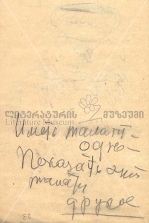 ლიტერატურის მუზეუმი
Literature Museum
Иметь талант -
одно -
Показать этот
талант
другое